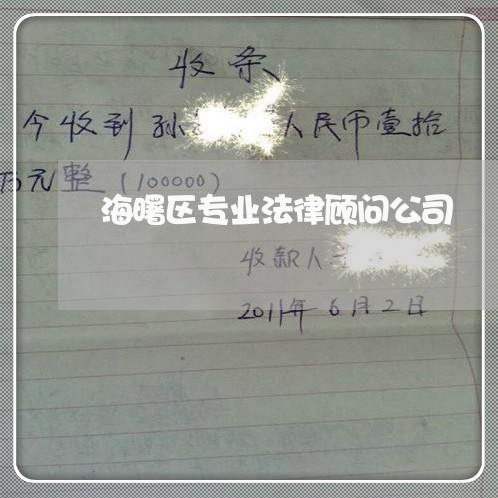 收条
今收到孙 人民币壹拾
万元整（100000）
海曙区专业法律顾问公司
收款人
2011年6月2日